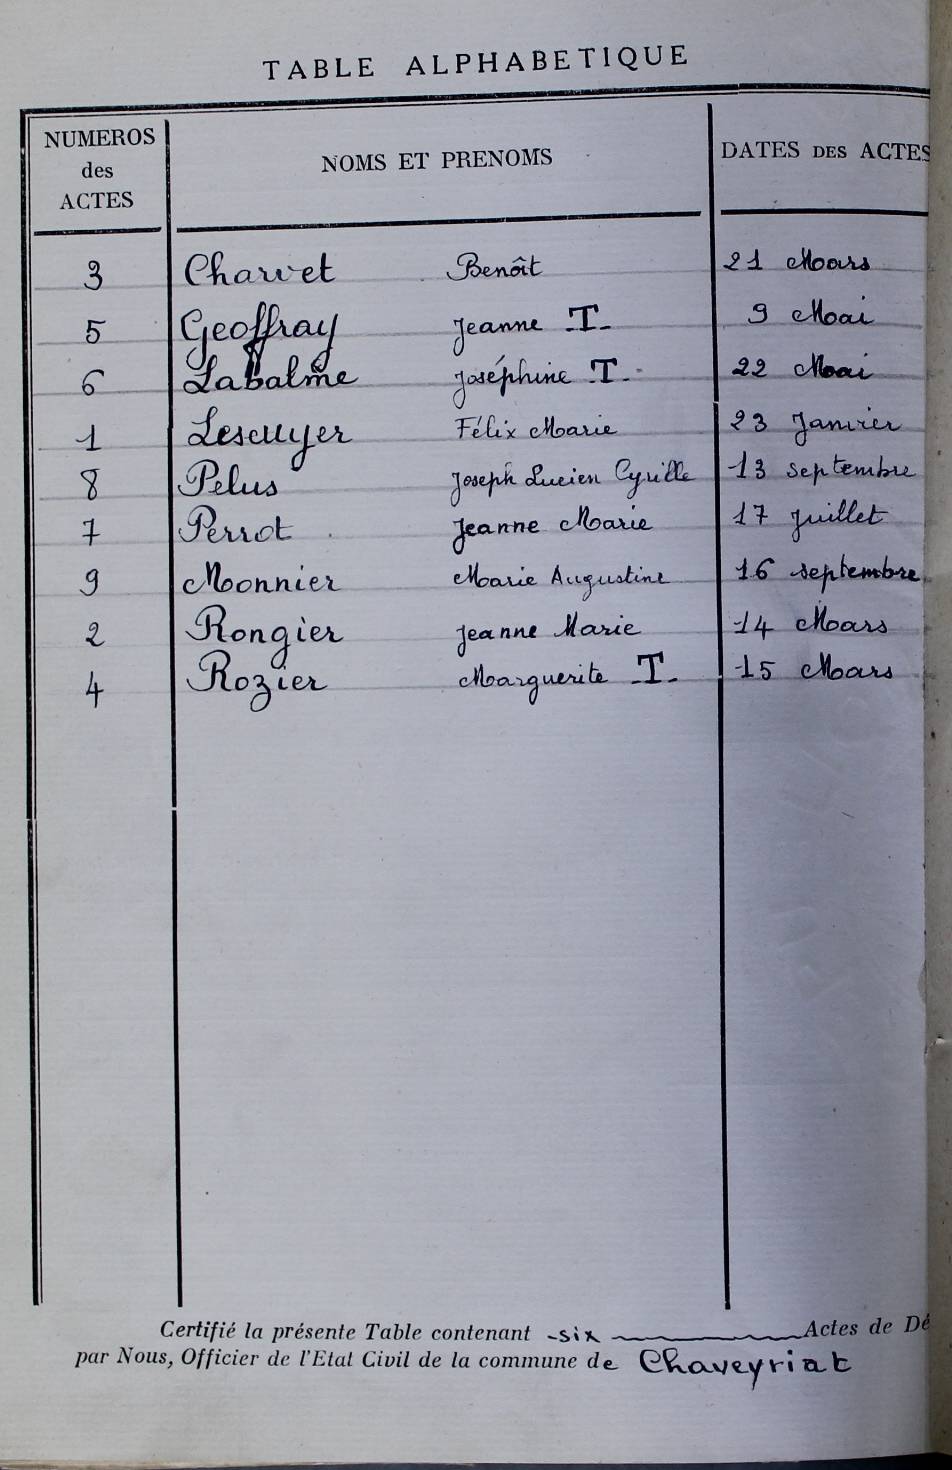 TABLE ALPHABETIQUE
NUMEROS des ACTES NOMS ET PRENOMS DATES DES ACTES
3 Charvet Benoît 21 Mars
5 Geoffray Jeanne -T- 9 Mai
6 Labalme Joséphine -T- 22 Mai
1 Lescuyer Félix Marie 23 Janvier
8 Pelus Joseph Lucien Cyrille 13 septembre
7 Perrot Jeanne Marie 17 juillet
9 Monnier Marie Augustine 16 septembre
2 Rongier Jeanne Marie 14 Mars
4 Rozier Marguerite -T- 15 Mars
Certifié la présente Table contenant -six Actes de Dé
par Nous, Officier de l'Etat Civil de la commune de Chaveyriat